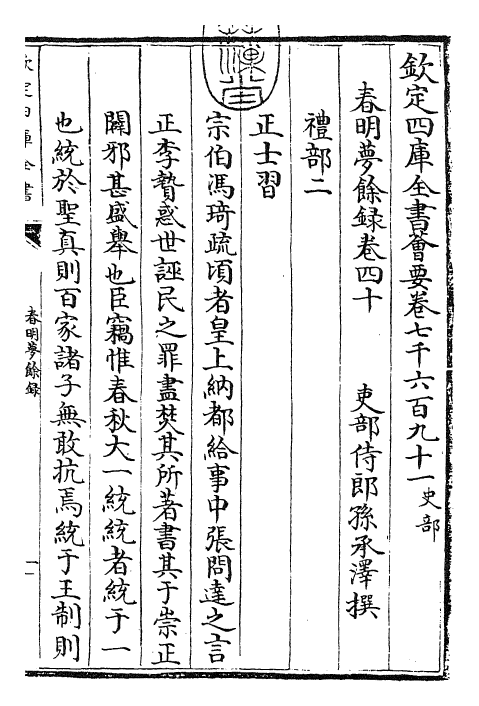 欽定四庫全書薈要卷七千六百九十一史部
春明夢餘録卷四十　吏部侍郎孫承澤撰
禮部二
正士習
宗伯馮琦疏頃者皇上納都給事中張問達之言
正李贄惑世誣民之罪盡焚其所著書其于崇正
闢邪甚盛舉也臣竊惟春秋大一統統者統于一
也統於聖真則百家諸子無敢抗焉統于王制則
欽定四庫全書
春明夢餘錄
一